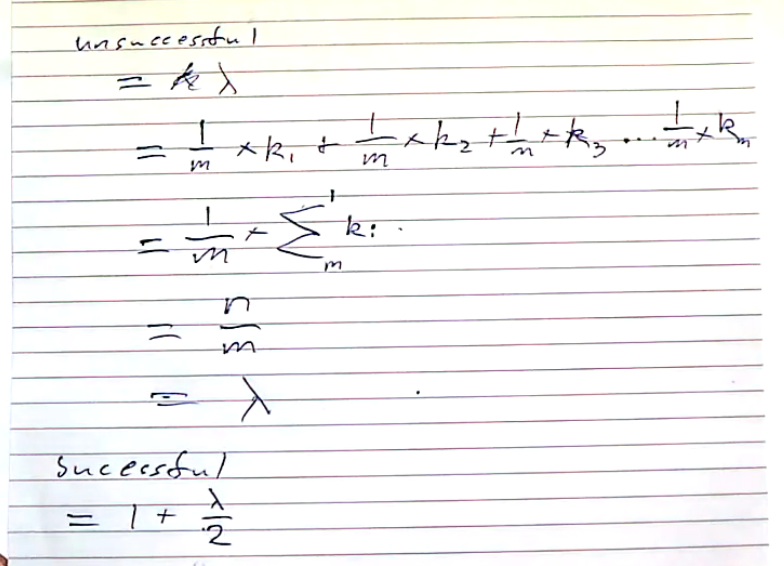 unsuccessful
= λ
= 1/m × k₁ + 1/m × k₂ + 1/m × k₃ ... 1/m × kₘ
= 1/m × Σ 1 m kᵢ .
= n/m
= λ
Sucessful
= 1 + λ/2